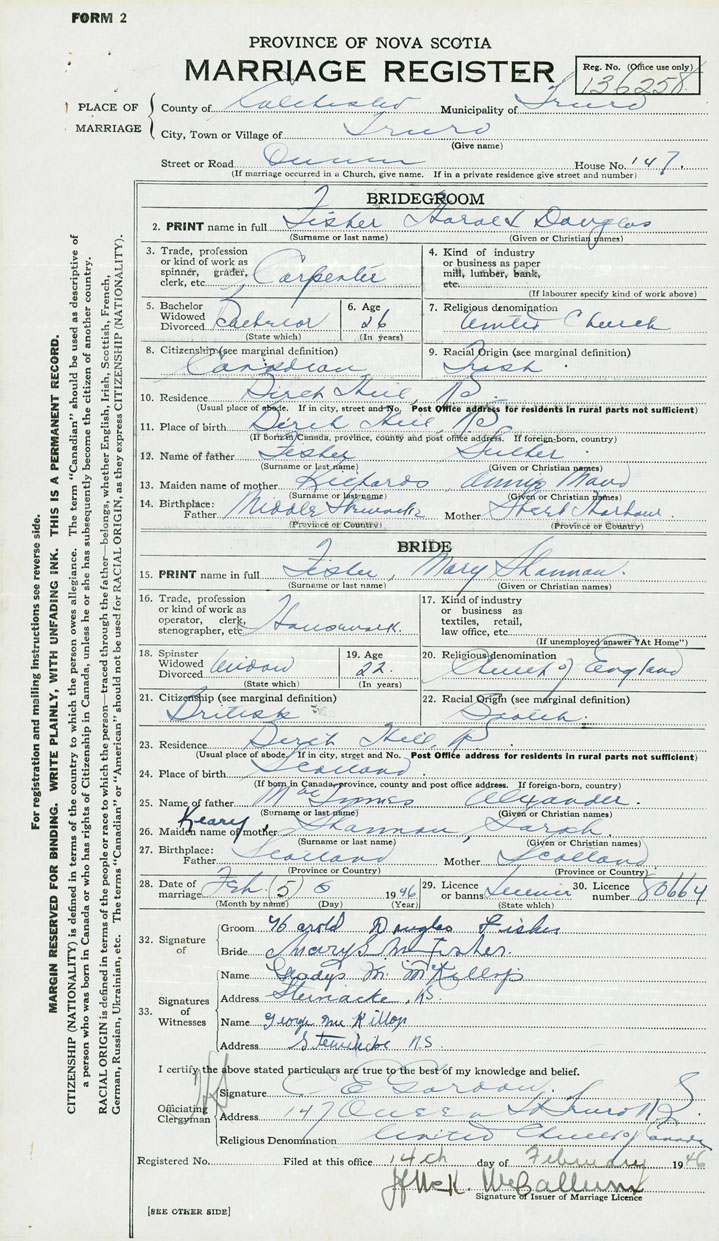 FORM 2
PROVINCE OF NOVA SCOTIA
MARRIAGE REGISTER
Reg. No. (Office use only)
136258
PLACE OF MARRIAGE
County of Colchester Municipality of Truro
City, Town or Village of Truro
(Give name)
Street or Road Queen House No. 147.
(If marriage occurred in a Church, give name. If in a private residence give street and number)
BRIDEGROOM
2. PRINT name in full Fisher Harold Douglas
(Surname or last name) (Given or Christian names)
3. Trade, profession or kind of work as spinner, grader, clerk, etc. Carpenter
4. Kind of industry or business as paper mill, lumber, bank, etc.
(If labourer specify kind of work above)
5. Bachelor Widowed Divorced Bachelor
(State which)
6. Age 26
(In years)
7. Religious denomination United Church
8. Citizenship (see marginal definition) Canadian
9. Racial Origin (see marginal definition) Irish
10. Residence Birch Hill, NS.
(Usual place of abode. If in city, street and No. Post Office address for residents in rural parts not sufficient)
11. Place of birth Birch Hill, NS
(If born in Canada, province, county and post office address. If foreign-born, country)
12. Name of father Fisher Luther
(Surname or last name) (Given or Christian names)
13. Maiden name of mother Richards Annie Maud
(Surname or last name) (Given or Christian names)
14. Birthplace: Father Middle Stewiacke Mother Sheet Harbour
(Province or Country) (Province or Country)
BRIDE
15. PRINT name in full Fisher, Mary Shannon.
(Surname or last name) (Given or Christian names)
16. Trade, profession or kind of work as operator, clerk, stenographer, etc. Housework.
17. Kind of industry or business as textiles, retail, law office, etc.
(If unemployed answer "At Home")
18. Spinster Widowed Divorced Widow
(State which)
19. Age 22.
(In years)
20. Religious denomination Church of England
21. Citizenship (see marginal definition) British
22. Racial Origin (see marginal definition) Scotch.
23. Residence Birch Hill NS
(Usual place of abode. If in city, street and No. Post Office address for residents in rural parts not sufficient)
24. Place of birth Scotland
(If born in Canada, province, county and post office address. If foreign-born, country)
25. Name of father Alexander.
(Surname or last name) (Given or Christian names)
26. Maiden name of mother Keary Shannon, Sarah.
(Surname or last name) (Given or Christian names)
27. Birthplace: Father Scotland Mother Scotland
(Province or Country) (Province or Country)
28. Date of marriage Feb. (5) 1946
(Month by name) (Day) (Year)
29. Licence or banns Licence
(State which)
30. Licence number 80664
32. Signature of
Groom Harold Douglas Fisher
Bride Mary S M Fisher.
33. Signatures of Witnesses
Name Gladys M. McKillop
Address Stewiacke, NS.
Name George McKillop
Address Stewiacke NS
I certify the above stated particulars are true to the best of my knowledge and belief.
Officiating Clergyman
Signature C E Gordon.
Address 147 Queen St Truro NS
Religious Denomination United Church of Canada
Registered No. Filed at this office 14th day of February 1946
McCallum
Signature of Issuer of Marriage Licence
[SEE OTHER SIDE]
For registration and mailing instructions see reverse side.
MARGIN RESERVED FOR BINDING. WRITE PLAINLY, WITH UNFADING INK. THIS IS A PERMANENT RECORD.
CITIZENSHIP (NATIONALITY) is defined in terms of the country to which the person owes allegiance. The term "Canadian" should be used as descriptive of
a person who was born in Canada or who has rights of Citizenship in Canada, unless he or she has subsequently become the citizen of another country.
RACIAL ORIGIN is defined in terms of the people or race to which the person—traced through the father—belongs, whether English, Irish, Scottish, French,
German, Russian, Ukrainian, etc. The terms "Canadian" or "American" should not be used for RACIAL ORIGIN, as they express CITIZENSHIP (NATIONALITY).